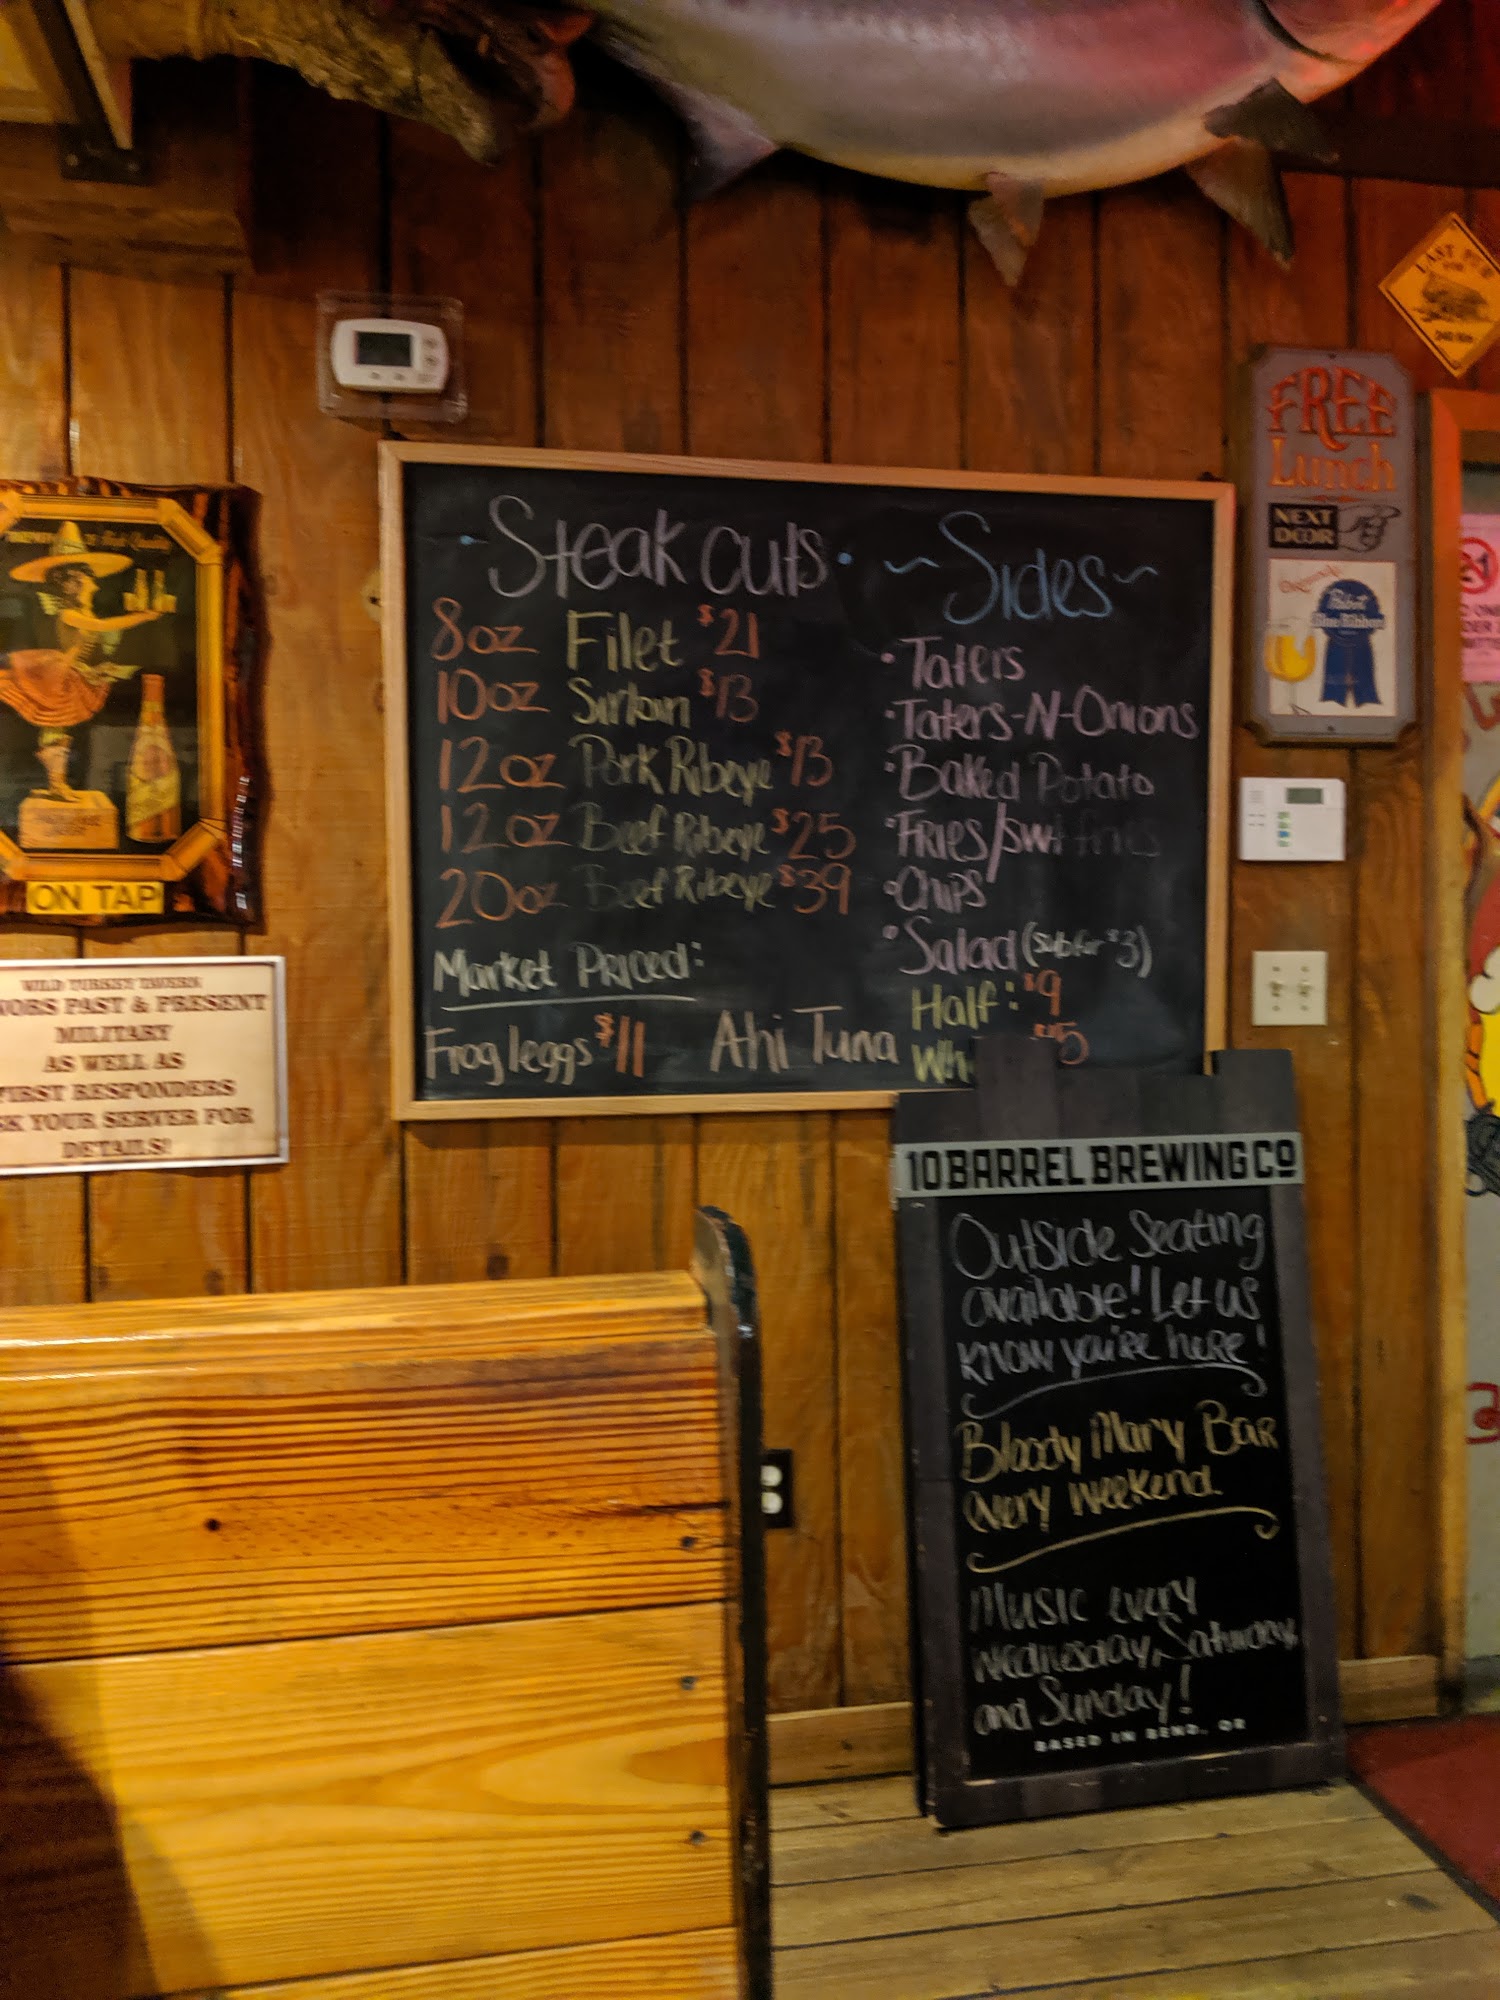 • Steak cuts •
8oz Filet $21
10oz Sirloin $13
12oz Pork Ribeye $13
12oz Beef Ribeye $25
20oz Beef Ribeye $39
Market Priced:
Frog leggs $11 Ahi Tuna
~ Sides ~
• Taters
• Taters-N-Onions
• Baked Potato
• Fries/swt fries
• Chips
• Salad (sub for $3)
Half: $9
Wh
ON TAP
WILD TURKEY TAVERN
NORS PAST & PRESENT
MILITARY
AS WELL AS
FIRST RESPONDERS
SK YOUR SERVER FOR
DETAILS!
FREE
Lunch
NEXT
DOOR
Pabst
Blue Ribbon
LAST PUB
FOR
10 BARREL BREWING CO
Outside Seating
available! Let us
know you're here!
Bloody Mary Bar
every weekend.
Music every
Wednesday, Saturday,
and Sunday!
BASED IN BEND, OR